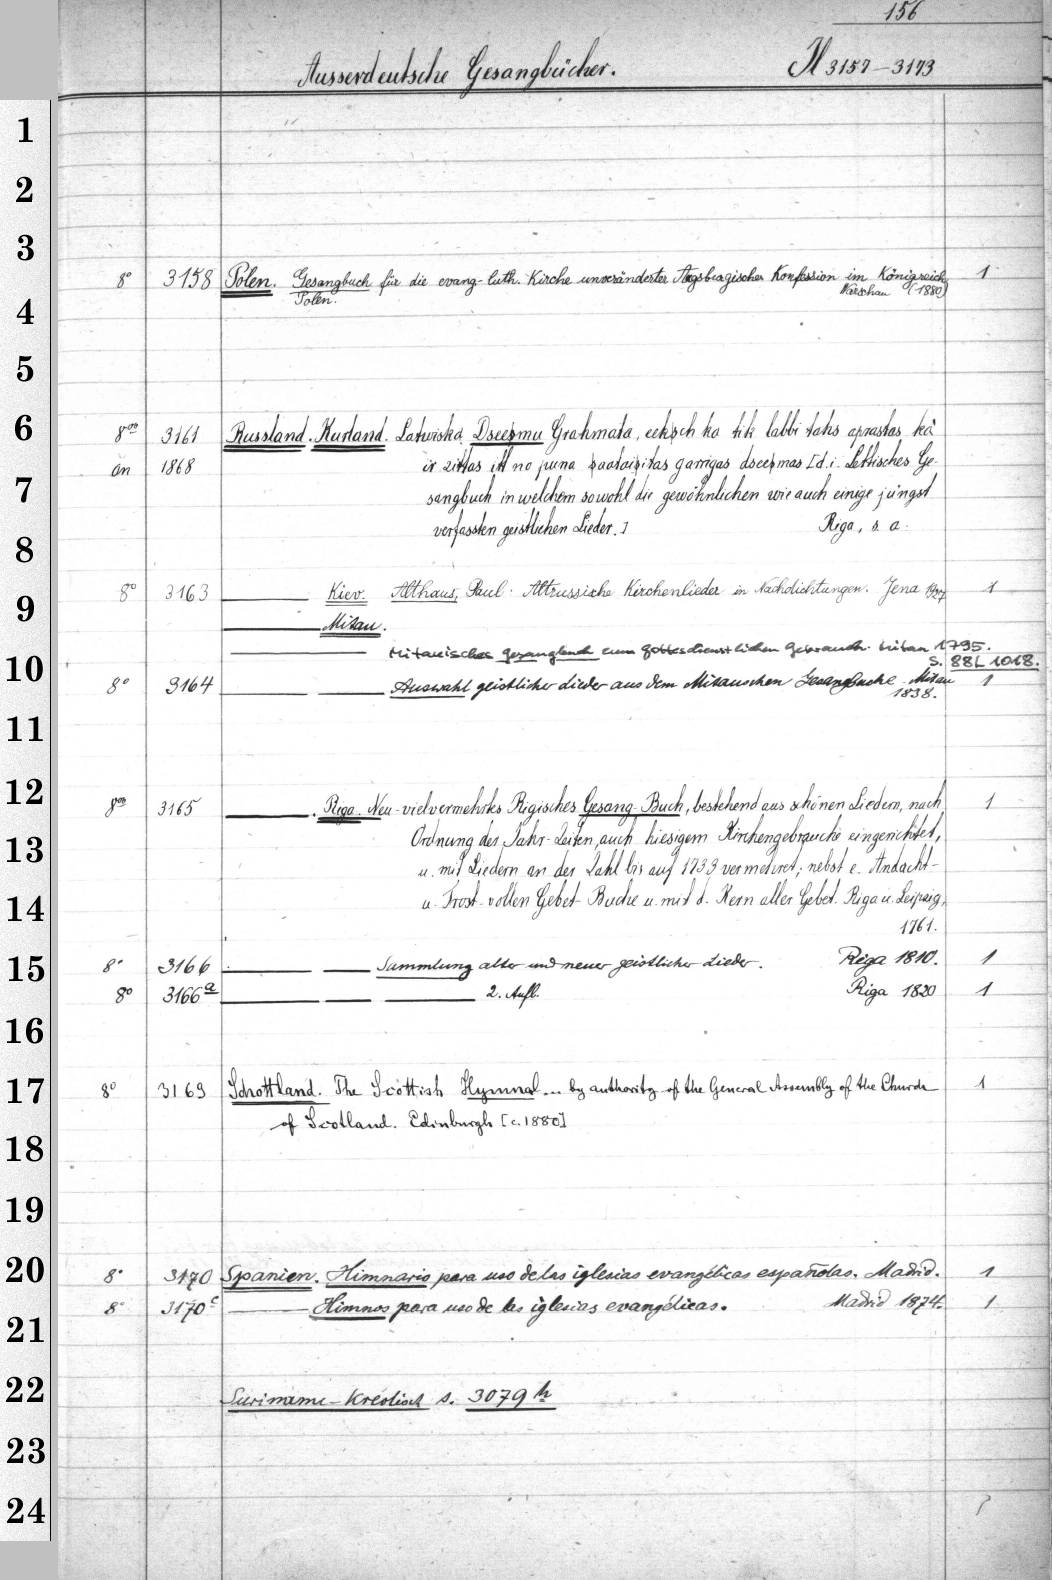 156
Ausserdeutsche Gesangbücher. Hl 3157-3173
8° 3158 Polen. Gesangbuch für die evang-luth. Kirche unveränderter Augsburgischer Konfession im Königreich 1
Polen. Warschau (1880)
8vo 3161 Russland. Kurland. Latwiska Dseesmu Grahmata, eeksch ka tik labbi tahs aprastas kà
an 1868 ir zittas itt no jauna garrigas dseesmas [d.i. Lettisches Ge-
sangbuch in welchem sowohl die gewöhnlichen wie auch einige jüngst
verfassten geistlichen Lieder.] Riga, s. a.
8° 3163 Kiev. Althaus, Paul: Altrussische Kirchenlieder in Nachdichtungen. Jena 1927 1
Mitau.
Mitauisches Gesangbuch zum gottesdienstlichen Gebrauch. Mitau 1795.
s. 88L 1018.
8° 3164 Auswahl geistlicher Lieder aus dem Mitauschen Gesangbuche Mitau 1
1838.
8vo 3165 Riga. Neu-vielvermehrtes Rigisches Gesang-Buch, bestehend aus schönen Liedern, nach 1
Ordnung der Jahr-Zeiten, auch hiesigem Kirchengebrauche eingerichtet,
u. mit Liedern an der Zahl bis auf 1233 vermehret; nebst e. Andacht-
u. Trost-vollen Gebet-Buche u. mit d. Kern aller Gebet. Riga u. Leipzig,
1761.
8° 3166 Sammlung alter und neuer geistlicher Lieder. Riga 1810. 1
8° 3166a 2. Aufl. Riga 1820 1
8° 3169 Schottland. The Scottish Hymnal... by authority of the General Assembly of the Church 1
of Scotland. Edinburgh [c. 1880]
8° 3170 Spanien. Himnario para uso de las iglesias evangélicas españolas. Madrid. 1
8° 3170c Himnos para uso de las iglesias evangélicas. Madrid 1874. 1
Suriname-Kreolisch s. 3079h
1
2
3
4
5
6
7
8
9
10
11
12
13
14
15
16
17
18
19
20
21
22
23
24